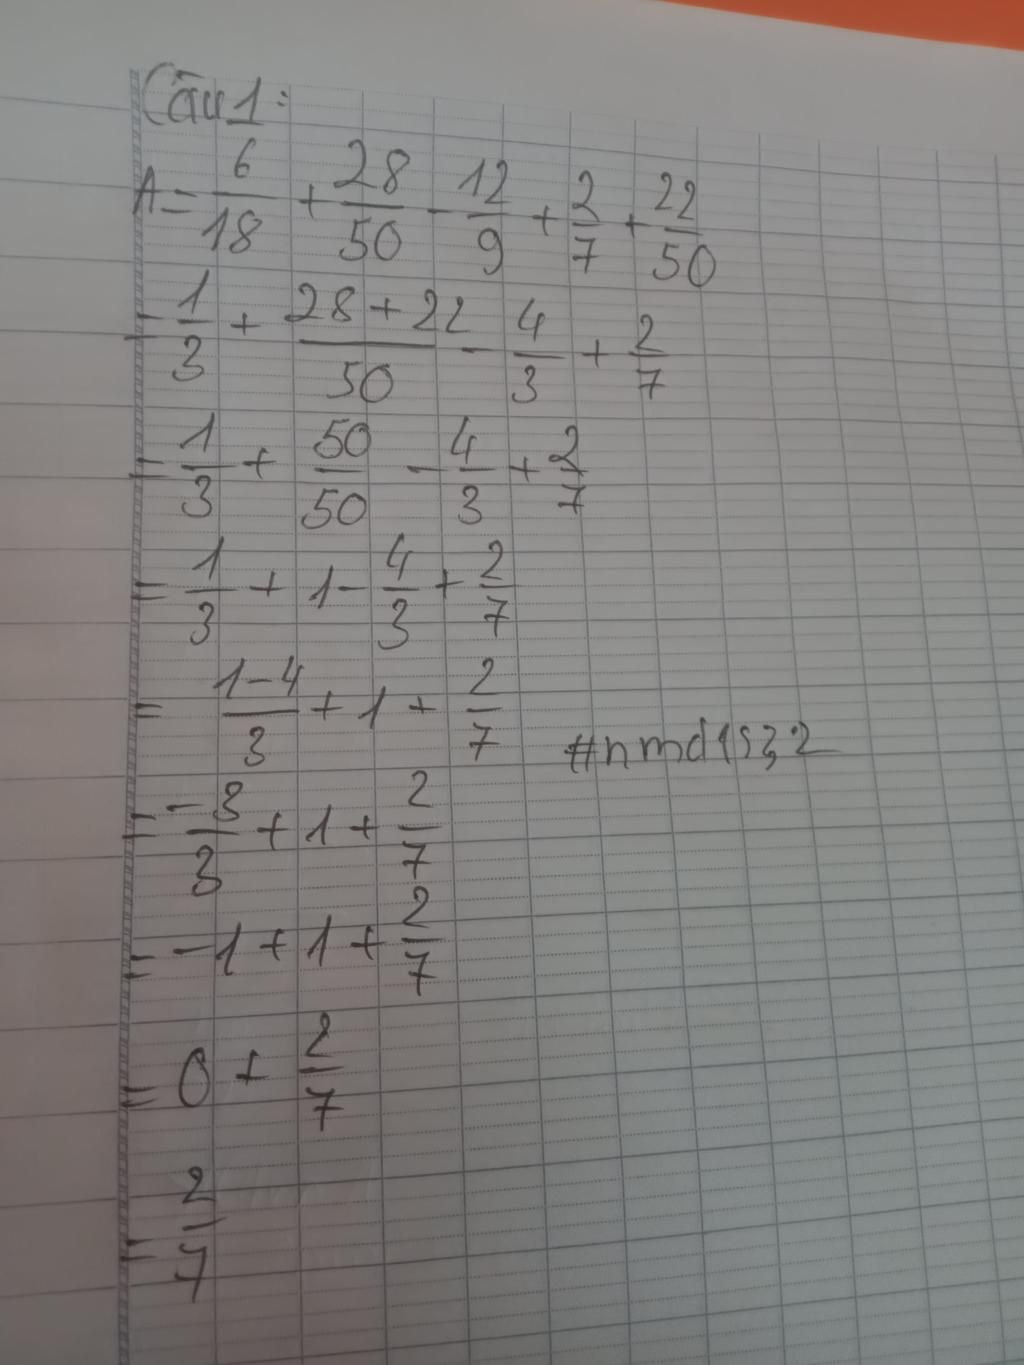 Câu 1:
A = 6/18 + 28/50 - 12/9 + 2/7 + 22/50
= 1/3 + (28 + 22)/50 - 4/3 + 2/7
= 1/3 + 50/50 - 4/3 + 2/7
= 1/3 + 1 - 4/3 + 2/7
= (1 - 4)/3 + 1 + 2/7
= -3/3 + 1 + 2/7
= -1 + 1 + 2/7
= 0 + 2/7
= 2/7